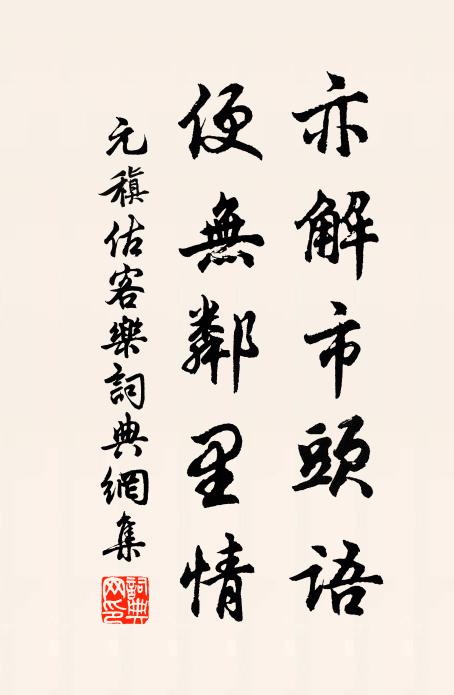 亦解市頭語
便無鄰里情
元稹估客樂詞典網集
詞典網印